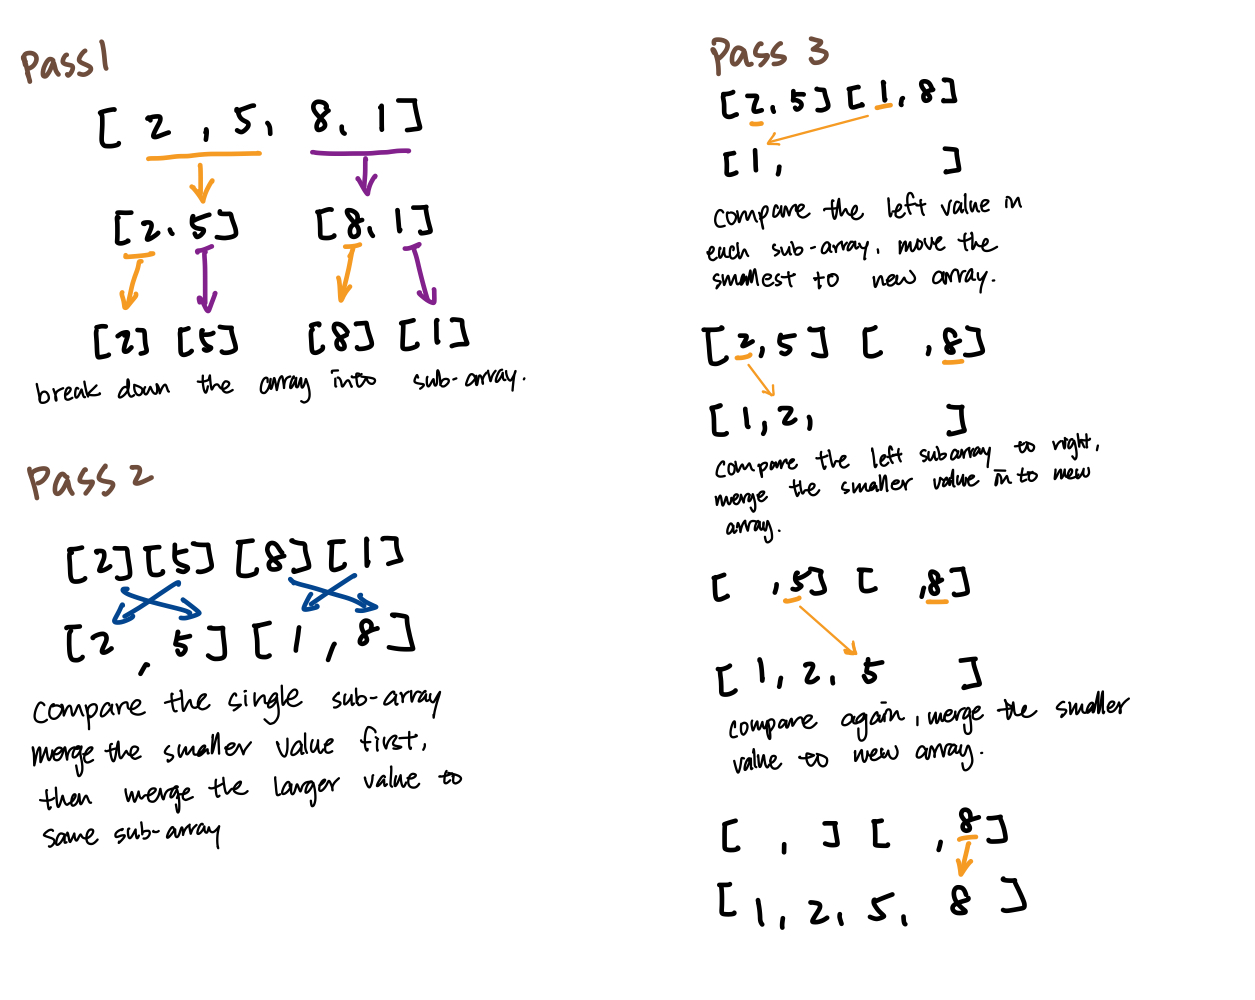 Pass 1
[ 2 , 5, 8, 1 ]
[2, 5] [8, 1]
[2] [5] [8] [1]
break down the array into sub-array.
Pass 2
[2] [5] [8] [1]
[2 , 5] [1 , 8]
Compare the single sub-array
merge the smaller value first,
then merge the larger value to
same sub-array
Pass 3
[2, 5] [1, 8]
[1, ]
Compare the left value in
each sub-array, move the
smallest to new array.
[2, 5] [ , 8]
[1, 2, ]
Compare the left subarray to right,
merge the smaller value in to new
array.
[ , 5] [ , 8]
[ 1, 2, 5 ]
compare again, merge the smaller
value to new array.
[ , ] [ , 8]
[ 1, 2, 5, 8 ]